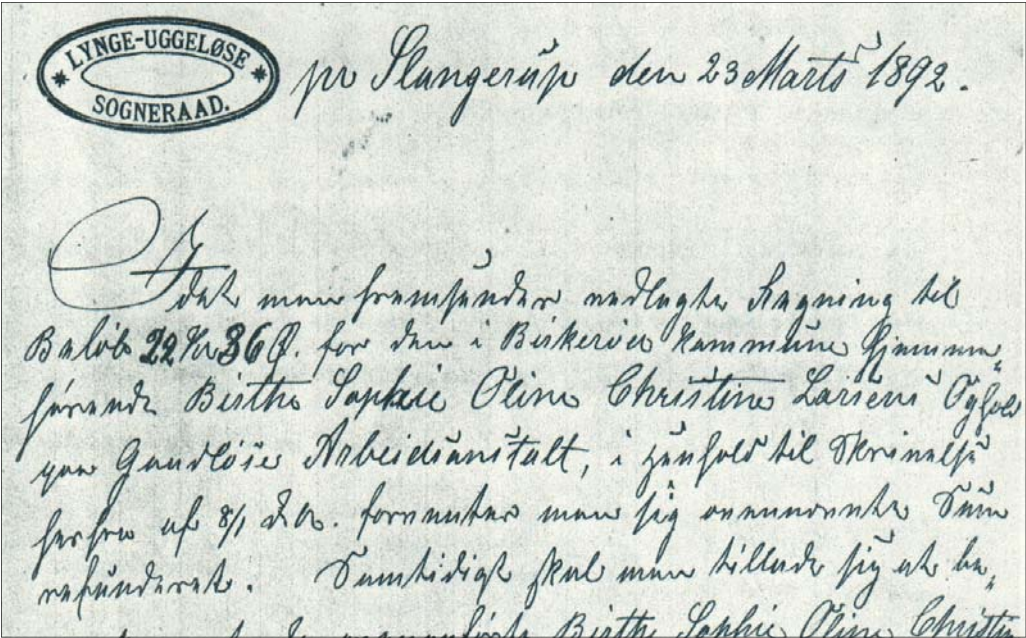 * LYNGE-UGGELØSE *
SOGNERAAD.
pr Slangerup den 23 Marts 1892.
Idet man fremsender vedlagte Regning til
Beløb 22 Kr 36 Ø. for den i Birkerød Kommune hjemme„
hørende Birthe Sophie Oline Christine Larsens Ophold
paa Ganløse Arbeidsanstalt, i Henhold til Skrivelse
herfra af 8/1 d. A. forventer man sig ovennævnte Sum
refunderet. Samtidigt skal man tillade sig at be„
Birthe Sophie Oline Christine